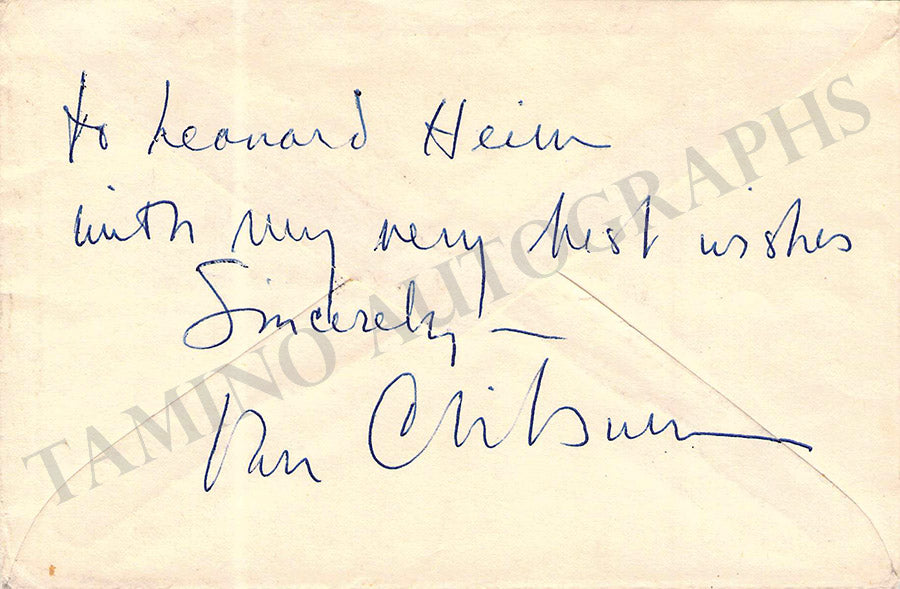 to Leonard Heim
with my very best wishes
Sincerely —
Van Cliburn
TAMINO AUTOGRAPHS